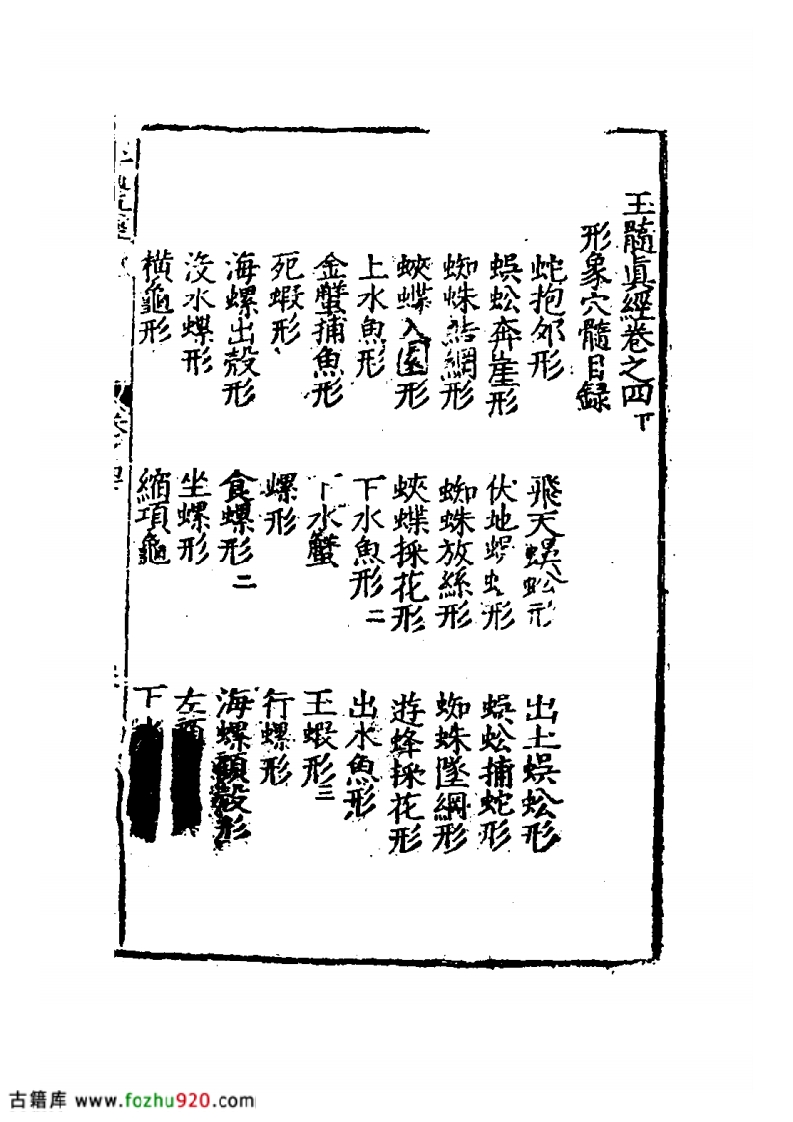 玉髓眞經卷之四下
形象穴髓目録
蛇抱卵形 飛天蜈蚣形 出土蜈蚣形
蜈蚣奔崖形 伏地蜈蚣形 蜈蚣捕蛇形
蜘蛛結網形 蜘蛛放絲形 蜘蛛墜網形
蛺蝶入園形 蛺蝶採花形 遊蜂採花形
上水魚形 下水魚形二 出水魚形
金蟹捕魚形 下水蟹 王蝦形三
死蝦形 螺形 行螺形
海螺出殼形 食螺形二 海螺頭殼形
沒水螺形 坐螺形 左
橫龜形 縮項龜 下
古籍库 www.fozhu920.com